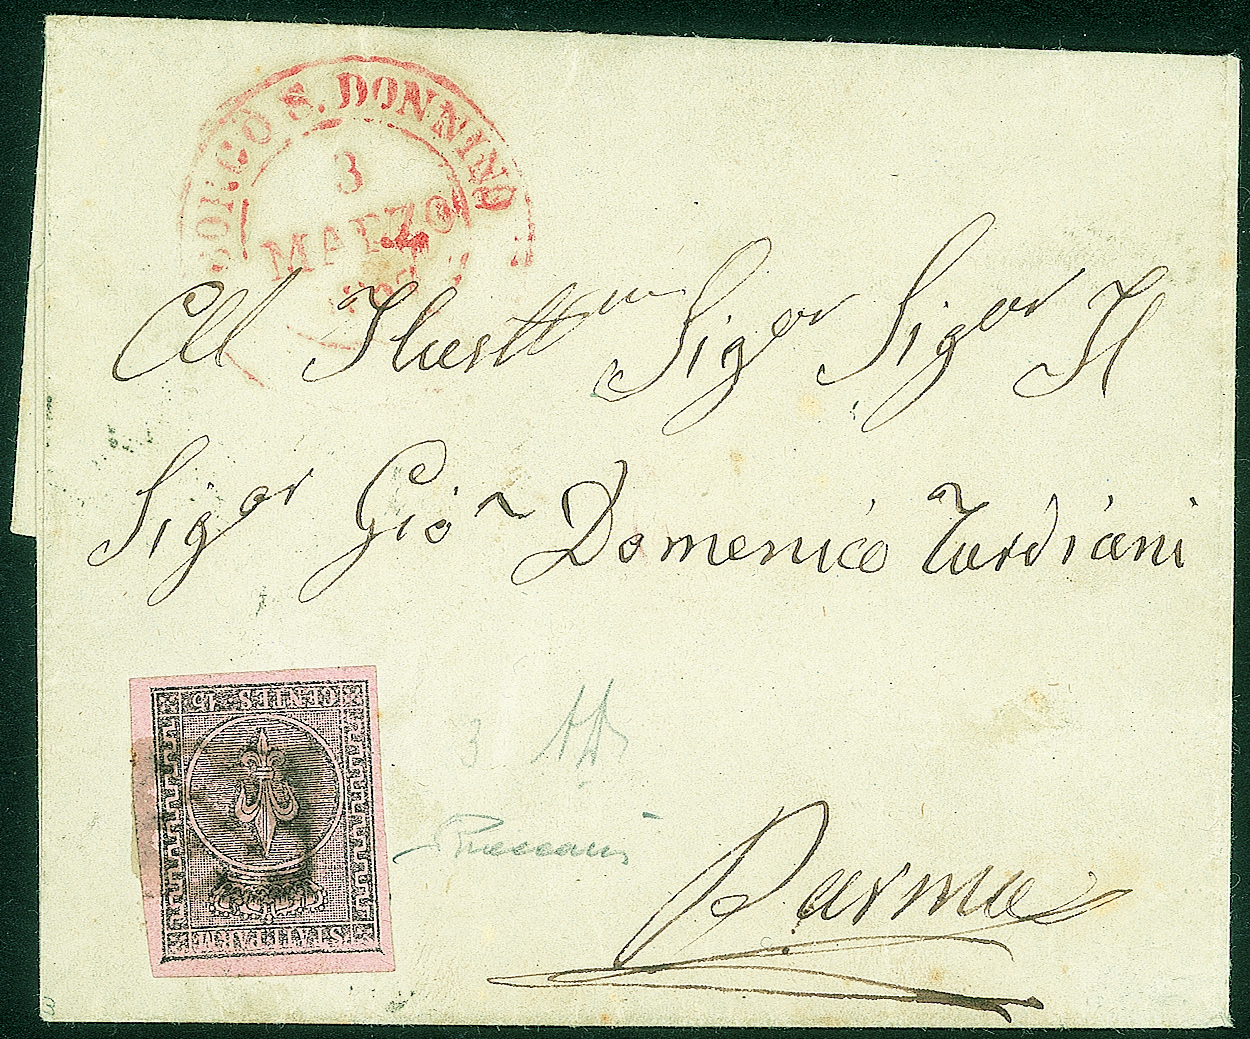 BORGO S. DONNINO
3
MARZO
Al Illust^mo Sig^or Sig^or Il
Sig^or Gio^n Domenico Tardiani
CENTES. 15
STATI PARM.
3
Parma